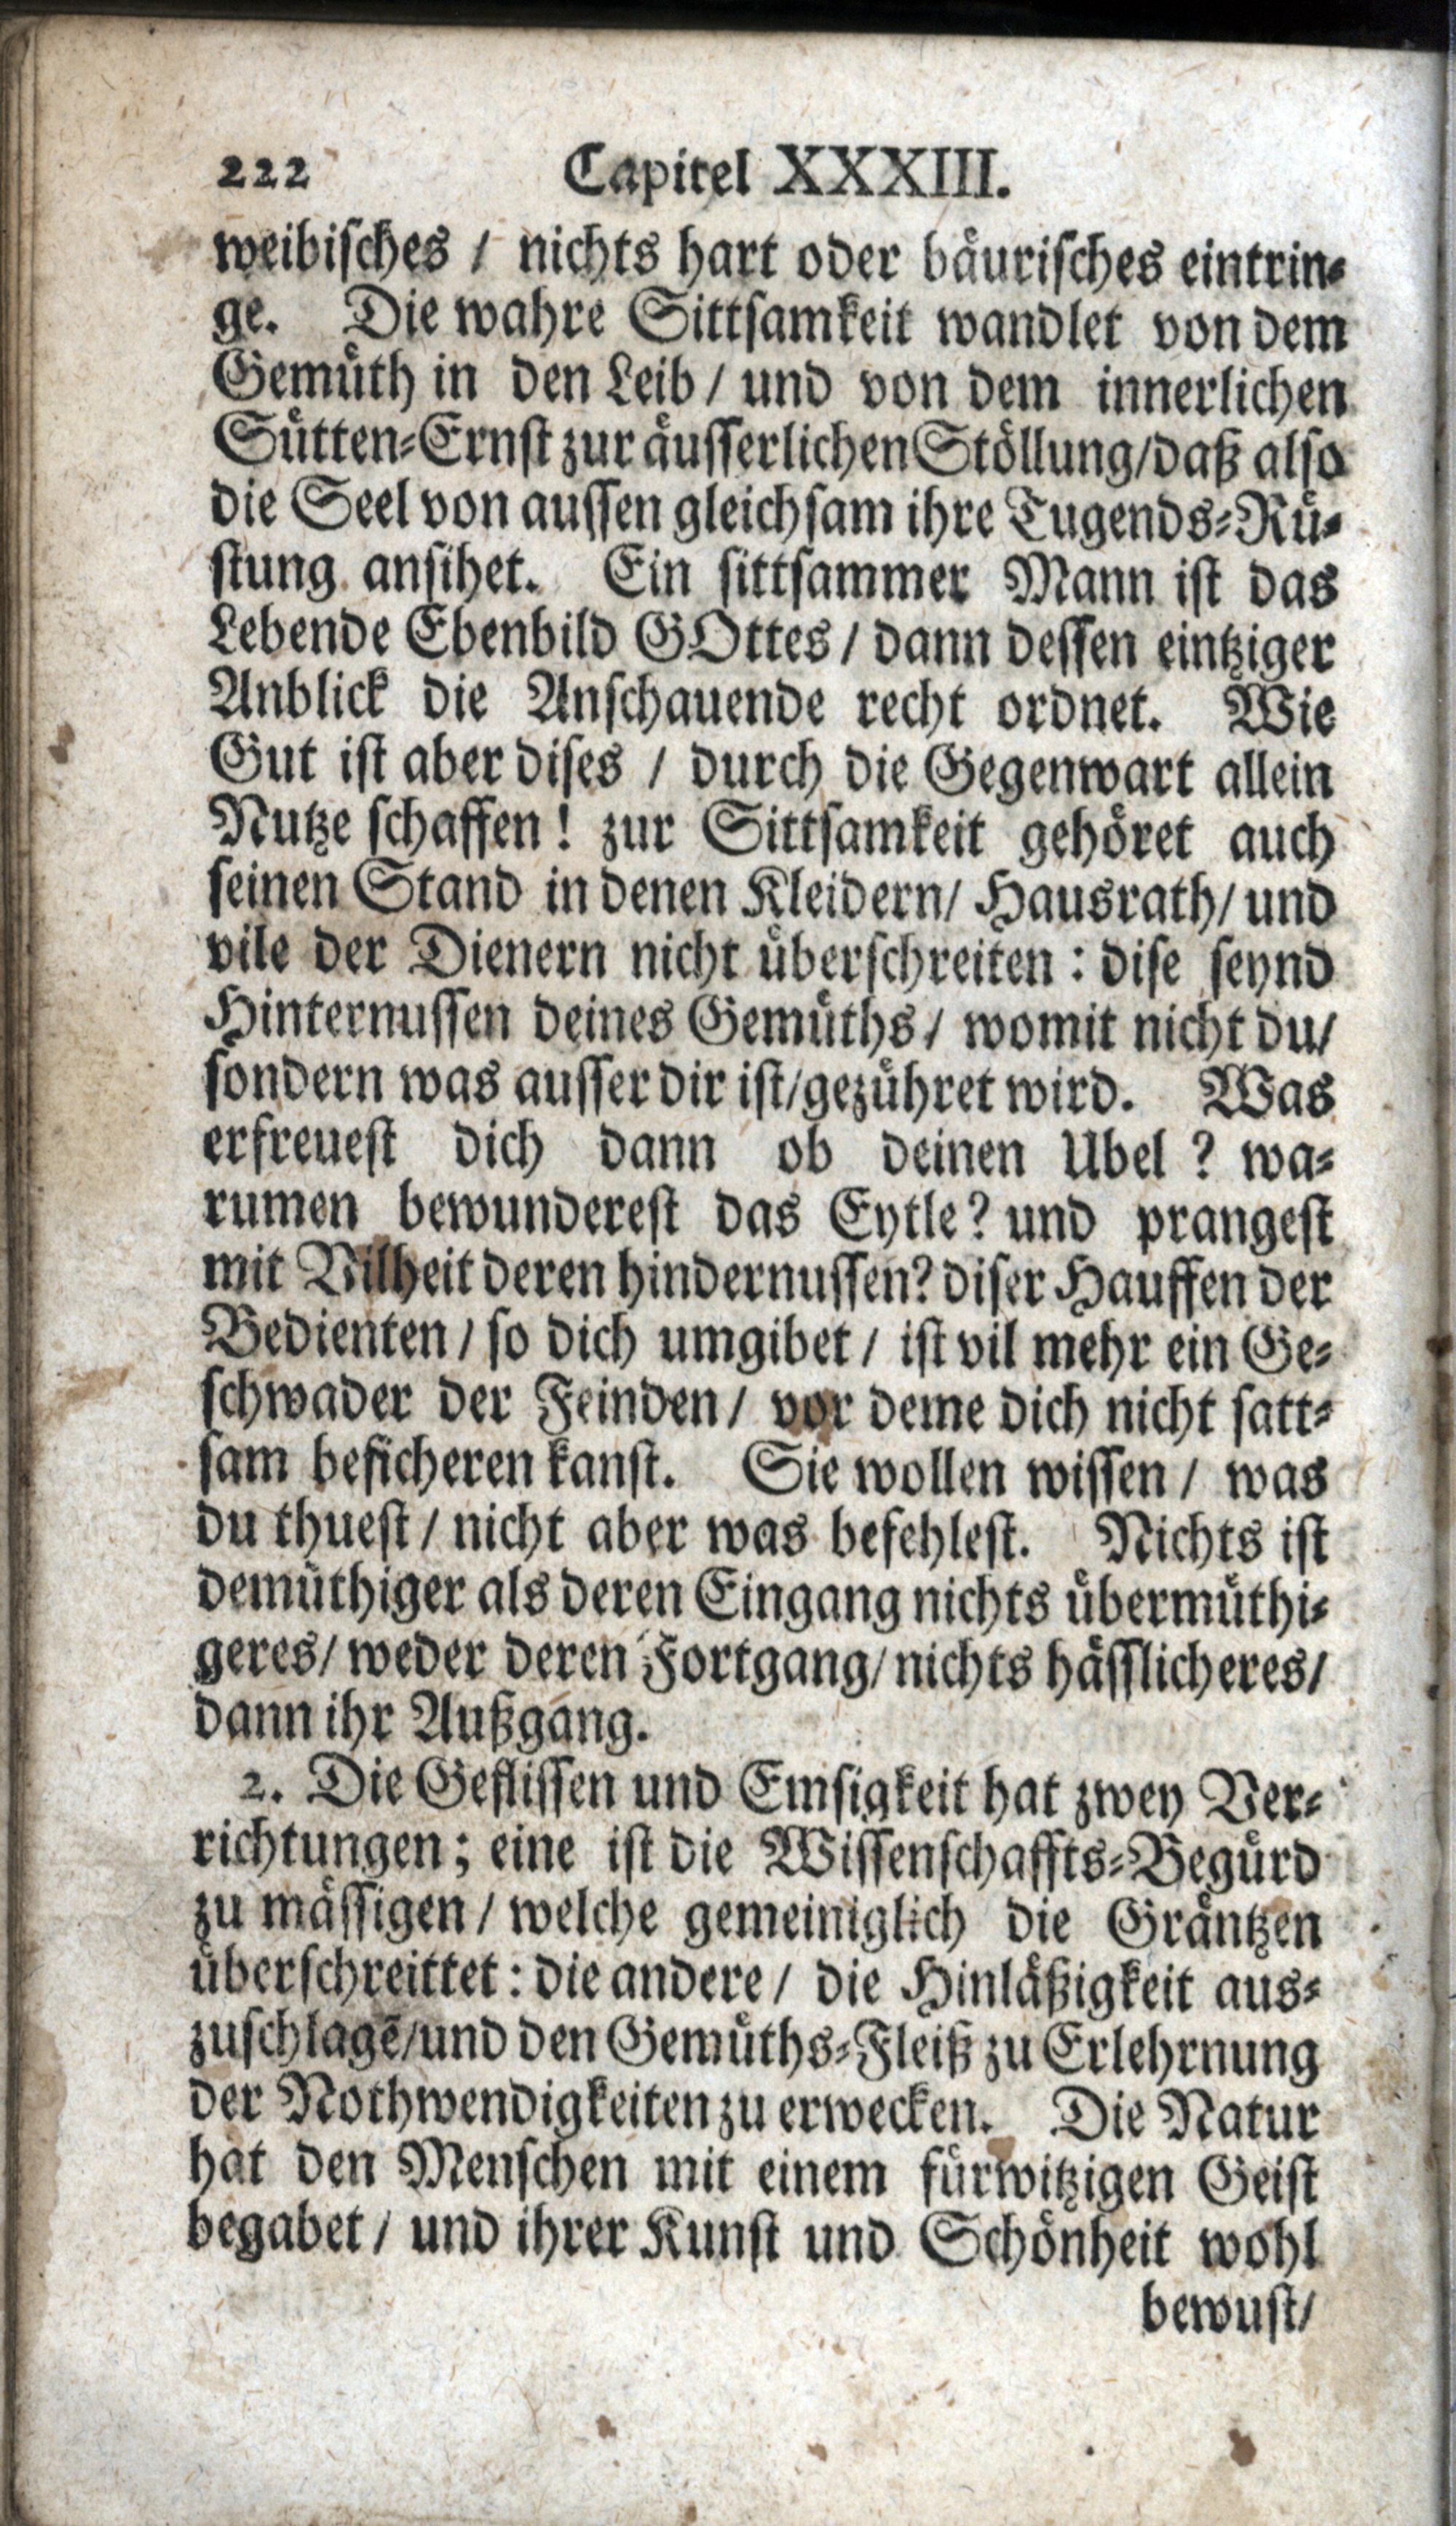 222 Capitel XXXIII.
weibisches / nichts hart oder bäurisches eintrin-
ge. Die wahre Sittsamkeit wandlet von dem
Gemüth in den Leib / und von dem innerlichen
Sütten-Ernst zur äusserlichen Stöllung/daß also
die Seel von aussen gleichsam ihre Tugends-Rü-
stung ansihet. Ein sittsammer Mann ist das
Lebende Ebenbild GOttes / dann dessen eintziger
Anblick die Anschauende recht ordnet. Wie
Gut ist aber dises / durch die Gegenwart allein
Nutze schaffen! zur Sittsamkeit gehöret auch
seinen Stand in denen Kleidern/ Hausrath/ und
vile der Dienern nicht überschreiten : dise seynd
Hinternussen deines Gemüths / womit nicht du/
sondern was ausser dir ist/gezühret wird. Was
erfreuest dich dann ob deinen Ubel ? wa-
rumen bewunderest das Eytle? und prangest
mit Vilheit deren hindernussen? diser Hauffen der
Bedienten / so dich umgibet / ist vil mehr ein Ge-
schwader der Feinden / vor deme dich nicht satt-
sam besicheren kanst. Sie wollen wissen / was
du thuest / nicht aber was befehlest. Nichts ist
demüthiger als deren Eingang nichts übermüthi-
geres/ weder deren Fortgang/ nichts hässlicheres/
dann ihr Außgang.
2. Die Geflissen und Emsigkeit hat zwey Ver-
richtungen; eine ist die Wissenschaffts-Begürd
zu mässigen / welche gemeiniglich die Gräntzen
überschreittet : die andere / die Hinläßigkeit aus-
zuschlagē/und den Gemüths-Fleiß zu Erlehrnung
der Nothwendigkeiten zu erwecken. Die Natur
hat den Menschen mit einem fürwitzigen Geist
begabet / und ihrer Kunst und Schönheit wohl
bewust/